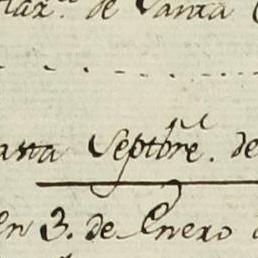 de Santa
asta Septbre. de
en 3. de Enero